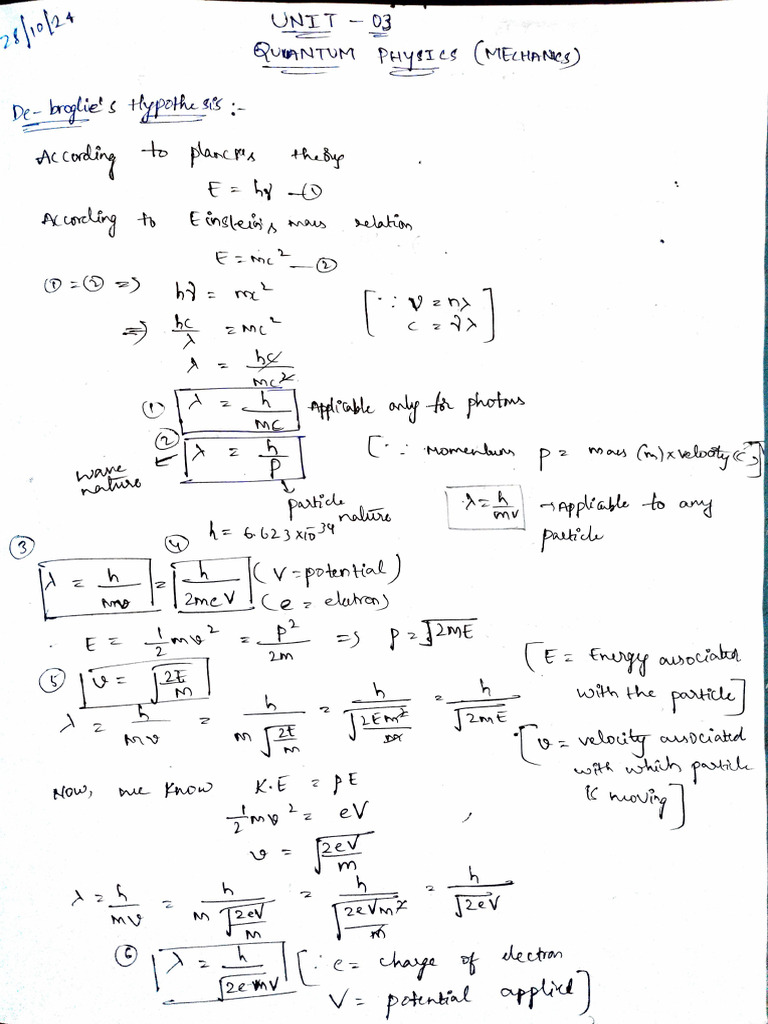 28/10/24
UNIT - 03
QUANTUM PHYSICS (MECHANICS)
De-broglie's Hypothesis :-
According to planck's theory
E = hγ —①
According to Einstein's mass relation
E = mc² —②
① = ② => hγ = mc² [∵ V = nλ
=> hc/λ = mc² c = γλ]
λ = hc/mc²
① λ = h/mc Applicable only for photons
② λ = h/p [∵ Momentum p = mass (m) x velocity (c)]
wave nature
particle nature
λ = h/mv → Applicable to any particle
h = 6.623 x 10^-34
③ λ = h/mv = ④ h/2meV (V = potential)
(e = eletron)
E = 1/2 mv² = p²/2m => p = √2mE
⑤ v = √2E/m [E = Energy associated with the particle]
λ = h/mv = h/m√2E/m = h/√2Em²/m = h/√2mE
[v = velocity associated with which particle is moving]
Now, we know K.E = PE
1/2 mv² = eV
v = √2eV/m
λ = h/mv = h/m√2eV/m = h/√2eVm²/m = h/√2eV
⑥ λ = h/√2emV [∵ e = charge of electron
V = potential applied]